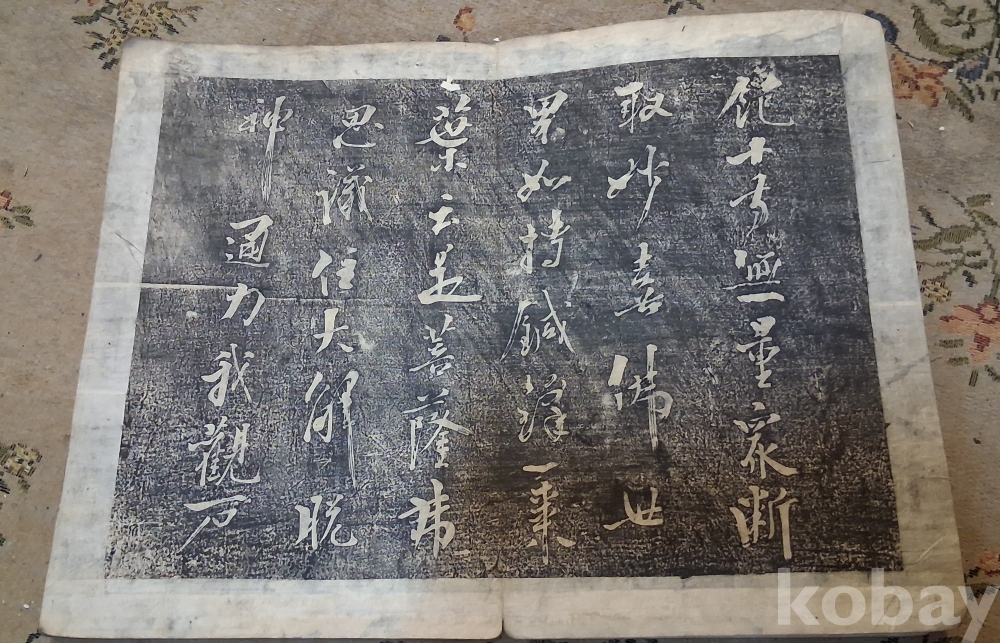 飽十方無量衆断
取妙喜佛世
界如持鍼鋒一棗
葉云是菩薩
思議住大解脱
神通力我觀石
kobay